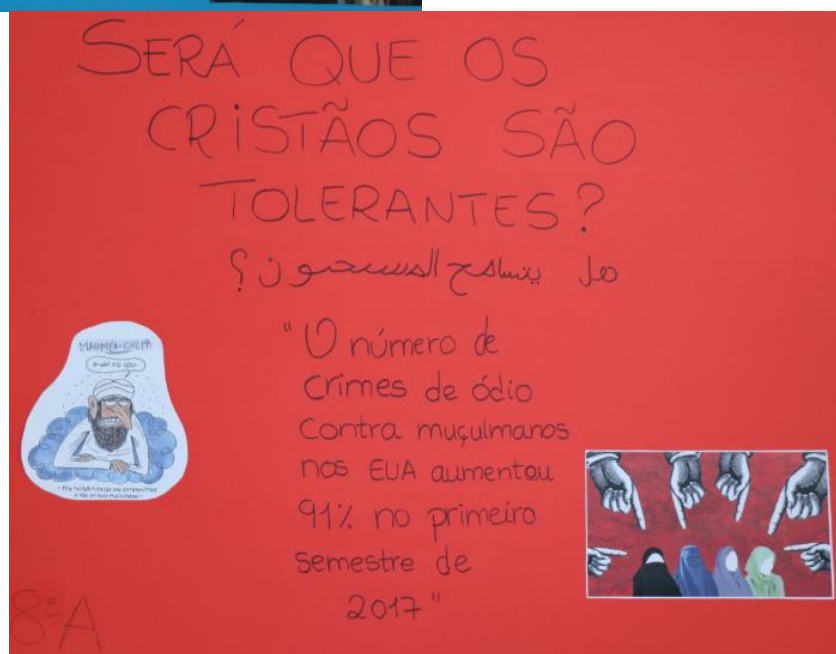 SERÁ QUE OS
CRISTÃOS SÃO
TOLERANTES?
هل يتسامح المسيحون؟
"O número de
crimes de ódio
contra muçulmanos
nos EUA aumentou
91% no primeiro
semestre de
2017"
8ºA